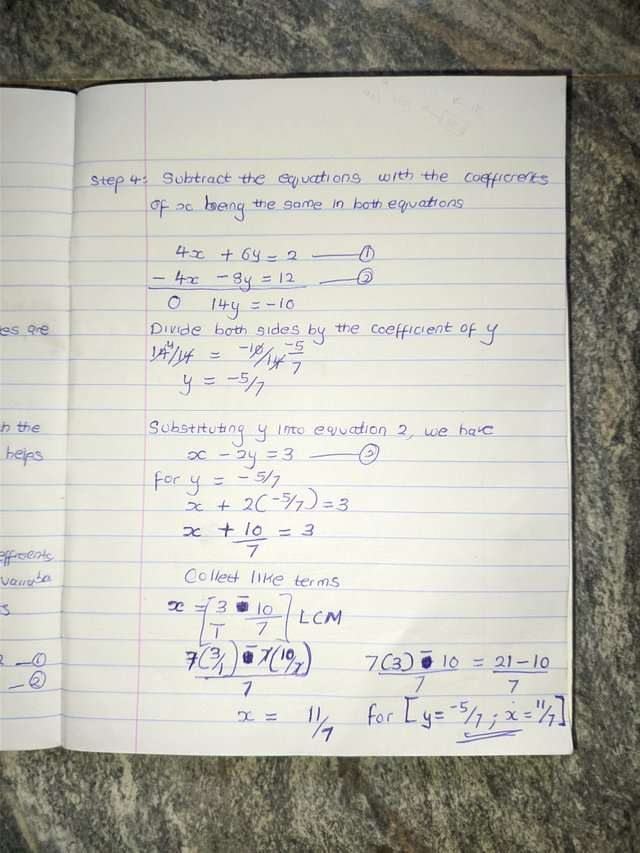 Step 4: Subtract the equations with the coefficients
of x being the same in both equations
4x + 6y = 2 —— ①
- 4x - 8y = 12 —— ②
0 14y = -10
es are
Divide both sides by the coefficient of y
14y/14 = -10/14 -5/7
y = -5/7
h the
Substituting y into equation 2, we have
helps
x - 2y = 3 —— ②
for y = -5/7
x + 2(-5/7) = 3
x + 10/7 = 3
efficients
Collect like terms
variable
s
x = [3/1 - 10/7] LCM
2 — ①
7(3/1) - 7(10/7) / 7
7(3) - 10 / 7 = 21 - 10 / 7
— ②
x = 11/7 for [y = -5/7 ; x = 11/7]